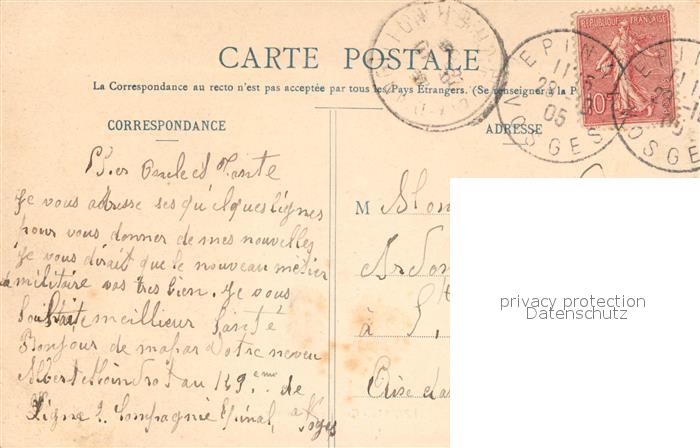 CARTE POSTALE
La Correspondance au recto n'est pas acceptée par tous les Pays Étrangers. (Se renseigner à la P
CORRESPONDANCE
ADRESSE
REPUBLIQUE FRANÇAISE
10
EPINAL
VOSGES
05
Oncle et Tante
Je vous adresse ses quelques lignes
pour vous donner de mes nouvelles
Je vous dirait que le nouveau métier
militaire vas très bien. Je vous
Souhaite meillieur Santé
Bonjour de ma par Votre neveu
Albert au 149eme de
Ligne 2. Compagnie Epinal, Vosges
M
à S.
privacy protection
Datenschutz